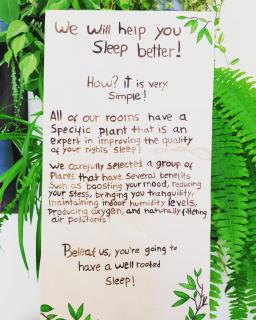 We will help you
Sleep better!
How? it is very
Simple!
All of our rooms have a
Specific plant that is an
expert in improving the quality
of your nights sleep!
We carefully selected a group of
Plants that have several benefits
Such as boosting your mood, reducing
your stess, bringing you tranquility,
maintaining indoor humidity levels,
Producing oxygen, and naturally filtering
air pollutants!
Beleaf us, you're going to
have a well rooted
Sleep!